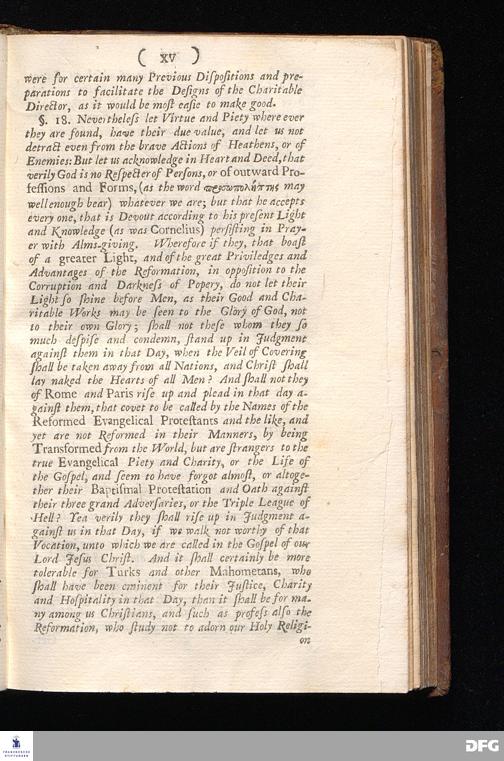 ( xv )
were for certain many Previous Diſpoſitions and pre-
parations to facilitate the Deſigns of the Charitable
Director, as it would be moſt eaſie to make good.
§. 18. Nevertheleſs let Virtue and Piety where ever
they are found, have their due value, and let us not
detract even from the brave Actions of Heathens, or of
Enemies: But let us acknowledge in Heart and Deed, that
verily God is no Reſpecter of Perſons, or of outward Pro-
feſſions and Forms, (as the word προσωπολήπτης may
well enough bear) whatever we are; but that he accepts
every one, that is Devout according to his preſent Light
and Knowledge (as was Cornelius) perſiſting in Pray-
er with Alms-giving. Wherefore if they, that boaſt
of a greater Light, and of the great Priviledges and
Advantages of the Reformation, in oppoſition to the
Corruption and Darkneſs of Popery, do not let their
Light ſo ſhine before Men, as their Good and Cha-
ritable Works may be ſeen to the Glory of God, not
to their own Glory; ſhall not theſe whom they ſo
much deſpiſe and condemn, ſtand up in Judgment
againſt them in that Day, when the Veil of Covering
ſhall be taken away from all Nations, and Chriſt ſhall
lay naked the Hearts of all Men? And ſhall not they
of Rome and Paris riſe up and plead in that day a-
gainſt them, that covet to be called by the Names of the
Reformed Evangelical Proteſtants and the like, and
yet are not Reformed in their Manners, by being
Transformed from the World, but are ſtrangers to the
true Evangelical Piety and Charity, or the Life of
the Goſpel, and ſeem to have forgot almoſt, or altoge-
ther their Baptiſmal Proteſtation and Oath againſt
their three grand Adverſaries, or the Triple League of
Hell? Yea verily they ſhall riſe up in Judgment a-
gainſt us in that Day, if we walk not worthy of that
Vocation, unto which we are called in the Goſpel of our
Lord Jeſus Chriſt. And it ſhall certainly be more
tolerable for Turks and other Mahometans, who
ſhall have been eminent for their Juſtice, Charity
and Hoſpitality in that Day, than it ſhall be for ma-
ny among us Chriſtians, and ſuch as profeſs alſo the
Reformation, who ſtudy not to adorn our Holy Religi-
on
FRANCKESCHE
STIFTUNGEN
DFG